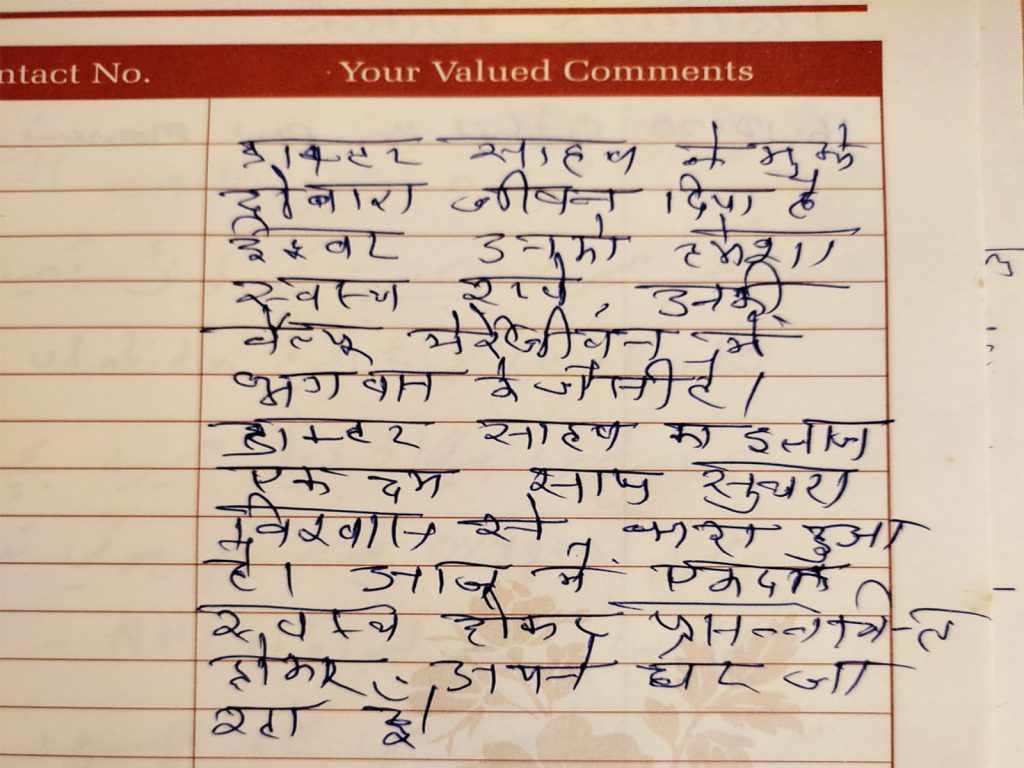 ntact No. Your Valued Comments
डाक्टर साहब ने मुझे
दोबारा जीवन दिया है
ईश्वर उनको हमेशा
स्वस्थ रखे, उनकी
मेरे जीवन में
भगवान के जैसी है।
डाक्टर साहब का इलाज
एक दम साफ सुथरा
विश्वास से भरा हुआ
है। आज में एकदम
स्वस्थ होकर
होकर अपने घर जा
रहा हूँ।